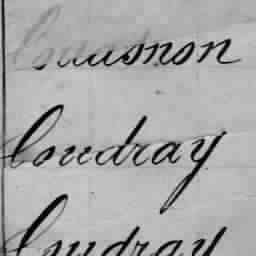 Couasnon
Coudray
Coudray